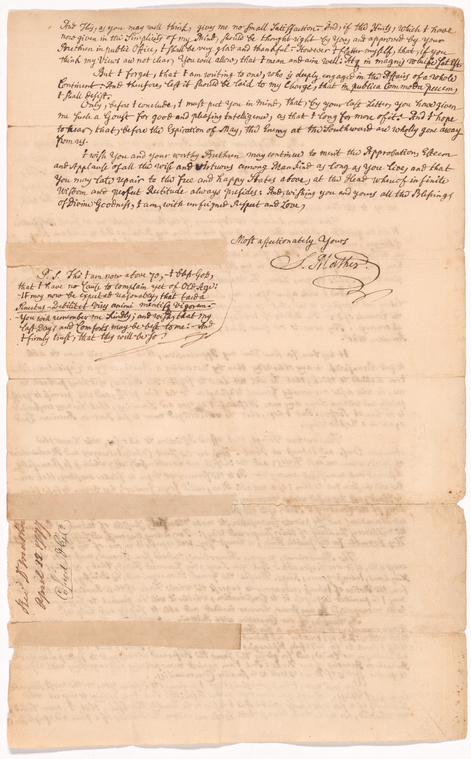 And This, as you may well think, give me no small Satisfaction. And, if the Hints, which I have
now given in the Simplicity of my Mind, should be thought right by You, and approved by Your
Brethren in public Office, I shall be very glad and thankful. However I flatter myself, that, if you
think my Views are not clear, You will allow, that I mean and aim well: Atq in magnis voluisse sat est.
But I forget, that I am writing to one, who is deeply engaged in the Affairs of a whole
Continent: And therefore, lest it should be laid to my Charge, that in publica Commoda peccem,
I shall desist.
Only, before I conclude, I must put You in mind, that, by your last Letters, you have given
me such a Goust for good and pleasing Intelligence, as that I long for more of it. And I hope
to hear, that, before the Expiration of May, the Enemy at the Southward are wholly gone away
from us.
I wish You and your worthy Brethren may continue to merit the Approbation, Esteem
and Applause of all the wise and virtuous among Mankind as long as You live; and that
You may late repair to the Free and happy States above, at the Head whereof infinite
Wisdom and perfect Rectitude always presides: And, wishing you and yours all the Blessings
of divine Goodness, I am, with unfeigned Respect and Love,
Most affectionately Yours
S. Mather.
P.S. Tho' I am now above 70, I bless God,
that I have no Cause to complain yet of Old Age:
It may now be expected reasonably, that
You will remember me kindly; and wish, that my
last Days and Comforts may be best to me: And
I firmly trust, that they will be so.
April 12 1777